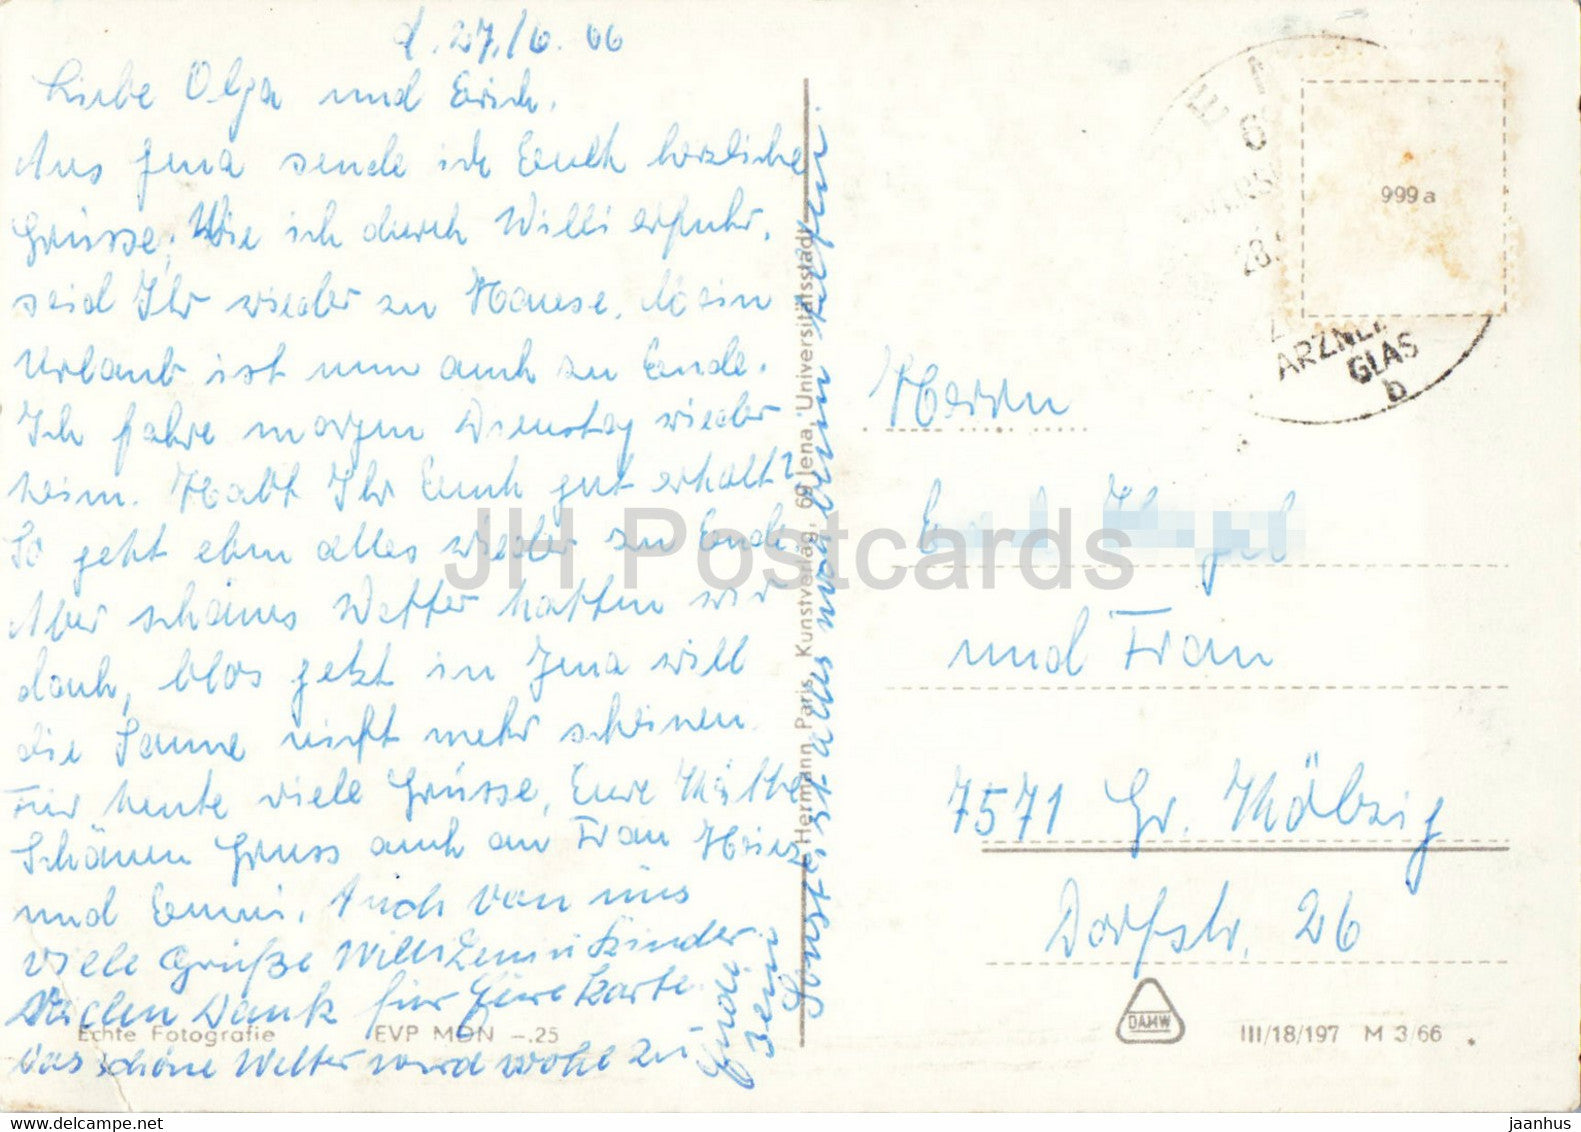 d. 27./6. 66
Liebe Olga und Erich.
Aus Jena sende ich Euch herzliche
Grüsse. Wie ich durch Willi erfuhr,
seid Ihr wieder zu Hause. Mein
Urlaub ist nun auch zu Ende.
Ich fahre morgen Dienstag wieder
heim. Habt Ihr Euch gut erholt?
So geht eben alles wieder zu Ende
Aber schönes Wetter hatten wir
doch, blos jetzt in Jena will
die Sonne nicht mehr scheinen.
Für heute viele Grüsse, Eure Käthe
Schönen Gruss auch an Frau Heinz
und Emmi. Auch von uns
viele Grüße Willi u Kinder.
Vielen Dank für Eure Karte.
Das schöne Wetter wird wohl zu
Ende sein
Sonst ist alles noch beim alten.
Hermann Paris, Kunstverlag, 69 Jena, Universitätsstadt
Echte Fotografie EVP MDN -.25
JH Postcards
999a
28.
ARZNEI
GLAS
b
Herrn
und Frau
7571 Gr. Kölzig
Dorfstr. 26
DAMW
III/18/197 M 3/66
jaanhus